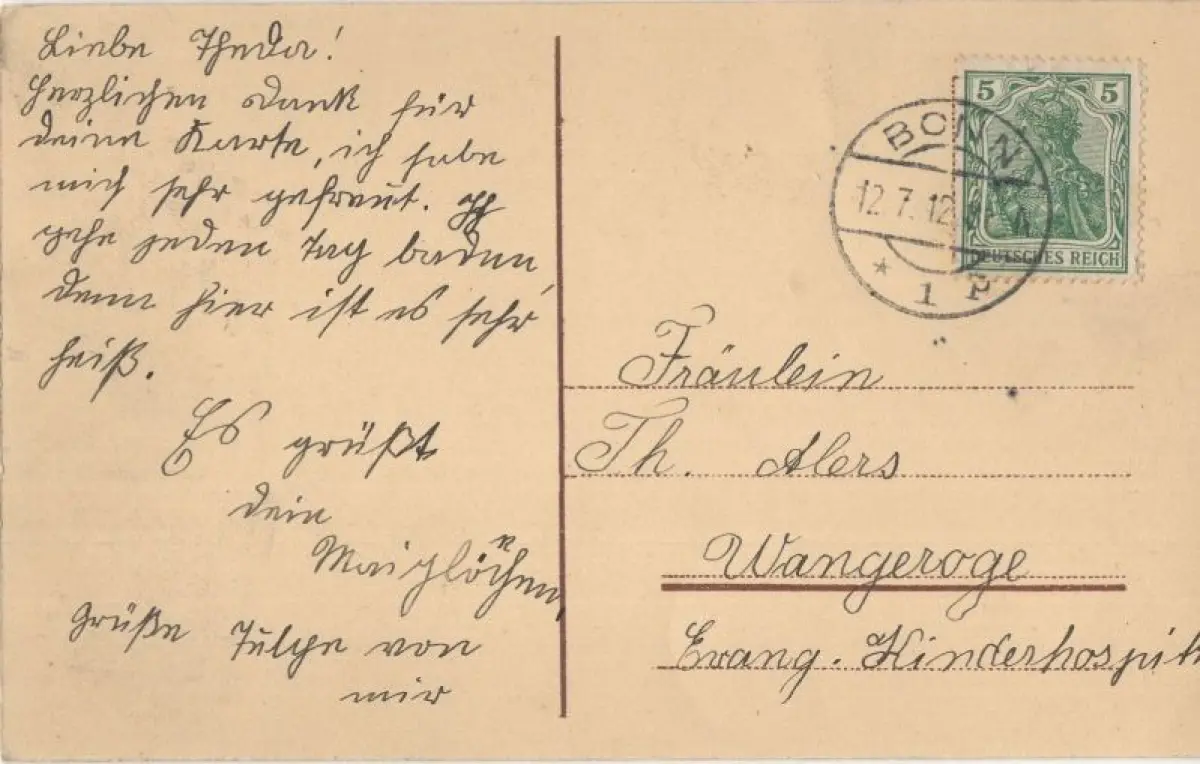 Liebe Theda!
Herzlichen Dank für
deine Karte, ich habe
mich sehr gefreut. Ich
gehe jeden Tag baden
denn hier ist es sehr
heiß.
Es grüßt
dein
Maiglöckchen,
Grüße Tulpe von
mir
5 5
DEUTSCHES REICH
BONN
12.7.12
* 1 F
Fräulein
Th. Alers
Wangeroge
Evang. Kinderhospit